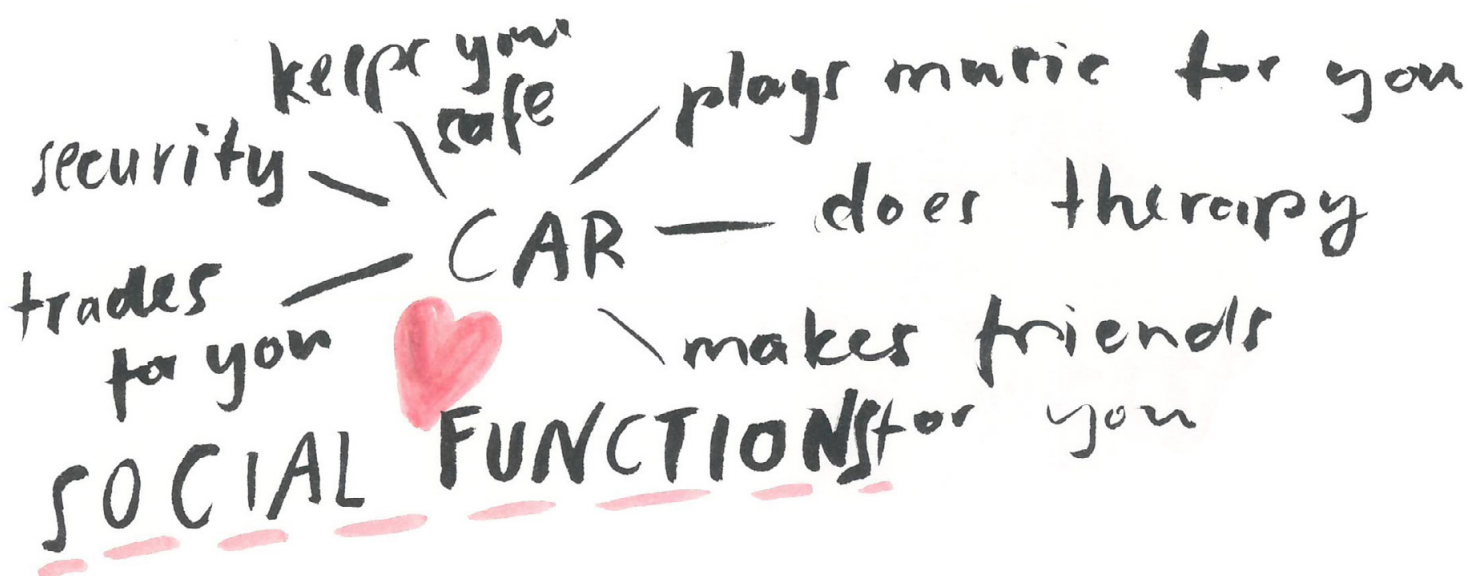 keeps you
safe
plays music for you
security
CAR
does therapy
trades
for you
makes friends
for you
SOCIAL FUNCTIONS